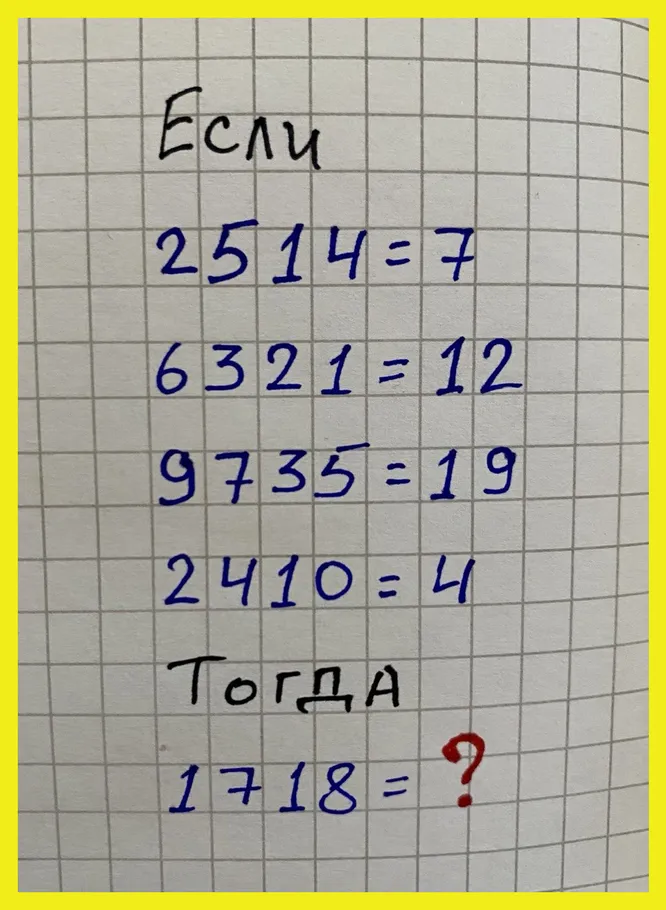 Если
2514=7
6321=12
9735=19
2410=4
Тогда
1718=?